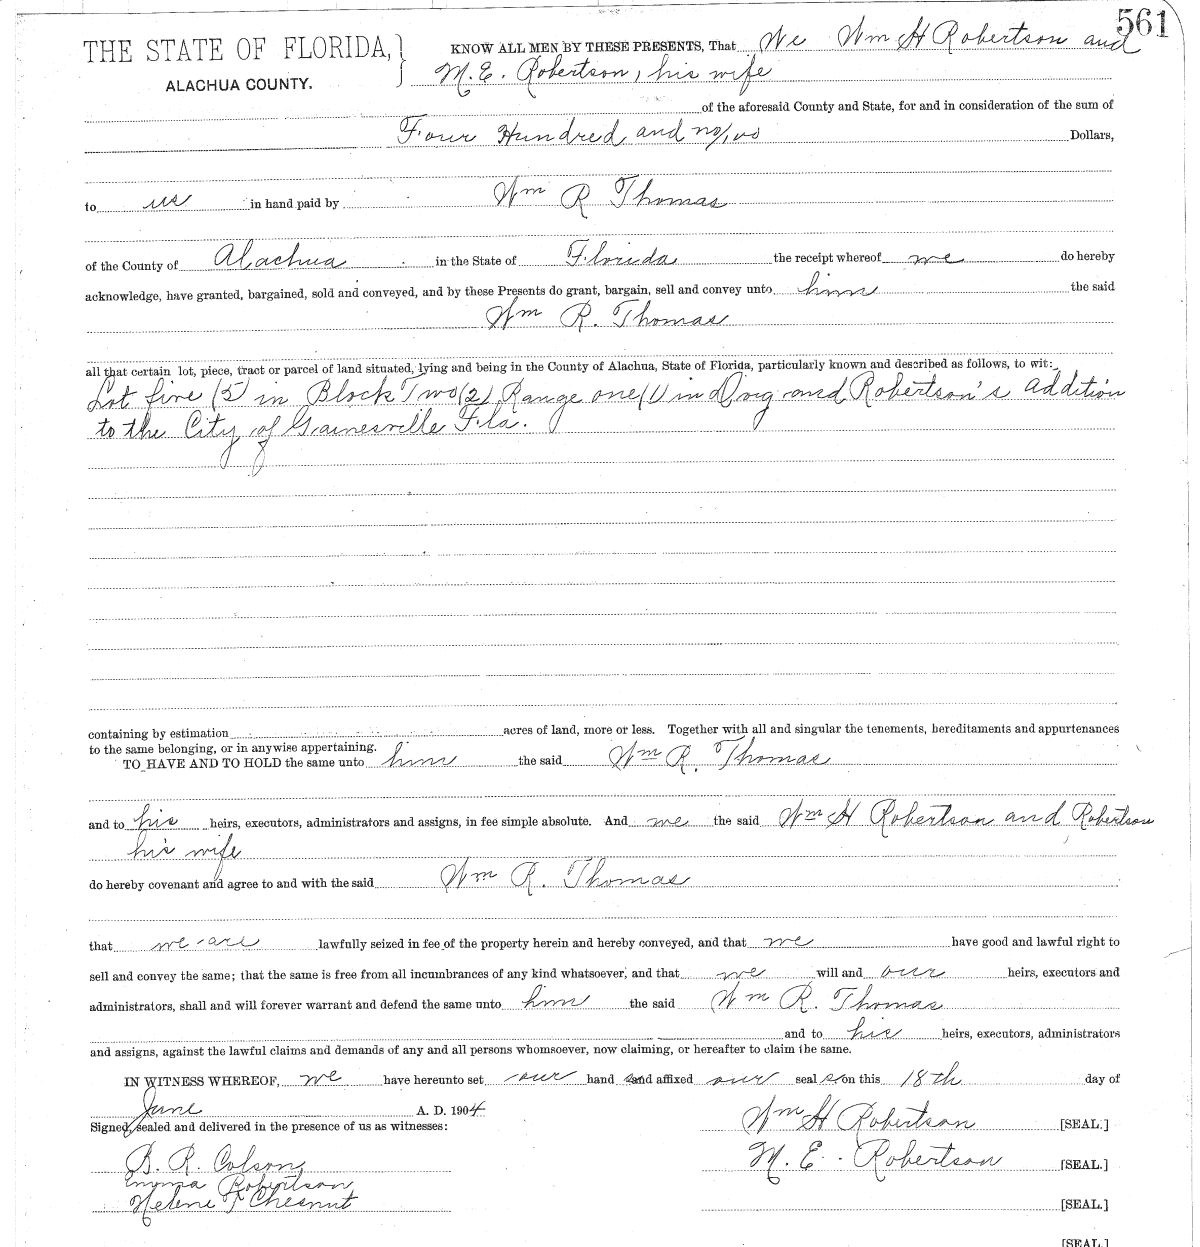 561
THE STATE OF FLORIDA, } KNOW ALL MEN BY THESE PRESENTS, That We Wm H Robertson and
ALACHUA COUNTY. M. E. Robertson, his wife
of the aforesaid County and State, for and in consideration of the sum of
Four Hundred and no/00 Dollars,
to us in hand paid by Wm R Thomas
of the County of Alachua in the State of Florida the receipt whereof we do hereby
acknowledge, have granted, bargained, sold and conveyed, and by these Presents do grant, bargain, sell and convey unto him the said
Wm R. Thomas
all that certain lot, piece, tract or parcel of land situated, lying and being in the County of Alachua, State of Florida, particularly known and described as follows, to wit:
Lot five (5) in Block Two (2) Range one (1) in Doig and Robertson's addition
to the City of Gainesville Fla.
containing by estimation acres of land, more or less. Together with all and singular the tenements, hereditaments and appurtenances
to the same belonging, or in anywise appertaining.
TO HAVE AND TO HOLD the same unto him the said Wm R. Thomas
and to his heirs, executors, administrators and assigns, in fee simple absolute. And we the said Wm H Robertson and Robertson
his wife
do hereby covenant and agree to and with the said Wm R. Thomas
that we are lawfully seized in fee of the property herein and hereby conveyed, and that we have good and lawful right to
sell and convey the same; that the same is free from all incumbrances of any kind whatsoever, and that we will and our heirs, executors and
administrators, shall and will forever warrant and defend the same unto him the said Wm R. Thomas
and to his heirs, executors, administrators
and assigns, against the lawful claims and demands of any and all persons whomsoever, now claiming, or hereafter to claim the same.
IN WITNESS WHEREOF, we have hereunto set our hand s and affixed our seal s on this 18th day of
June A. D. 1904
Signed, sealed and delivered in the presence of us as witnesses: Wm H Robertson [SEAL.]
B. R. Colson M. E. Robertson [SEAL.]
Emma Robertson
Helene T Chesnut [SEAL.]
[SEAL.]